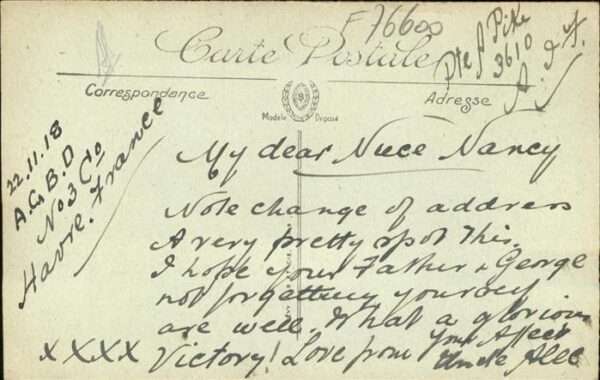 F 76600
Carte Postale
Pte A Pike
3610
A. I. F.
Correspondance
Adresse
Modèle Déposé
22.11.18
A.G.B.D
No 3 Co
Havre. France
My dear Niece Nancy
Note change of address
A very pretty spot this.
I hope your Father & George
not forgetting yourself
are well. What a glorious
Victory! Love from your Affect
XXXX Uncle Alec